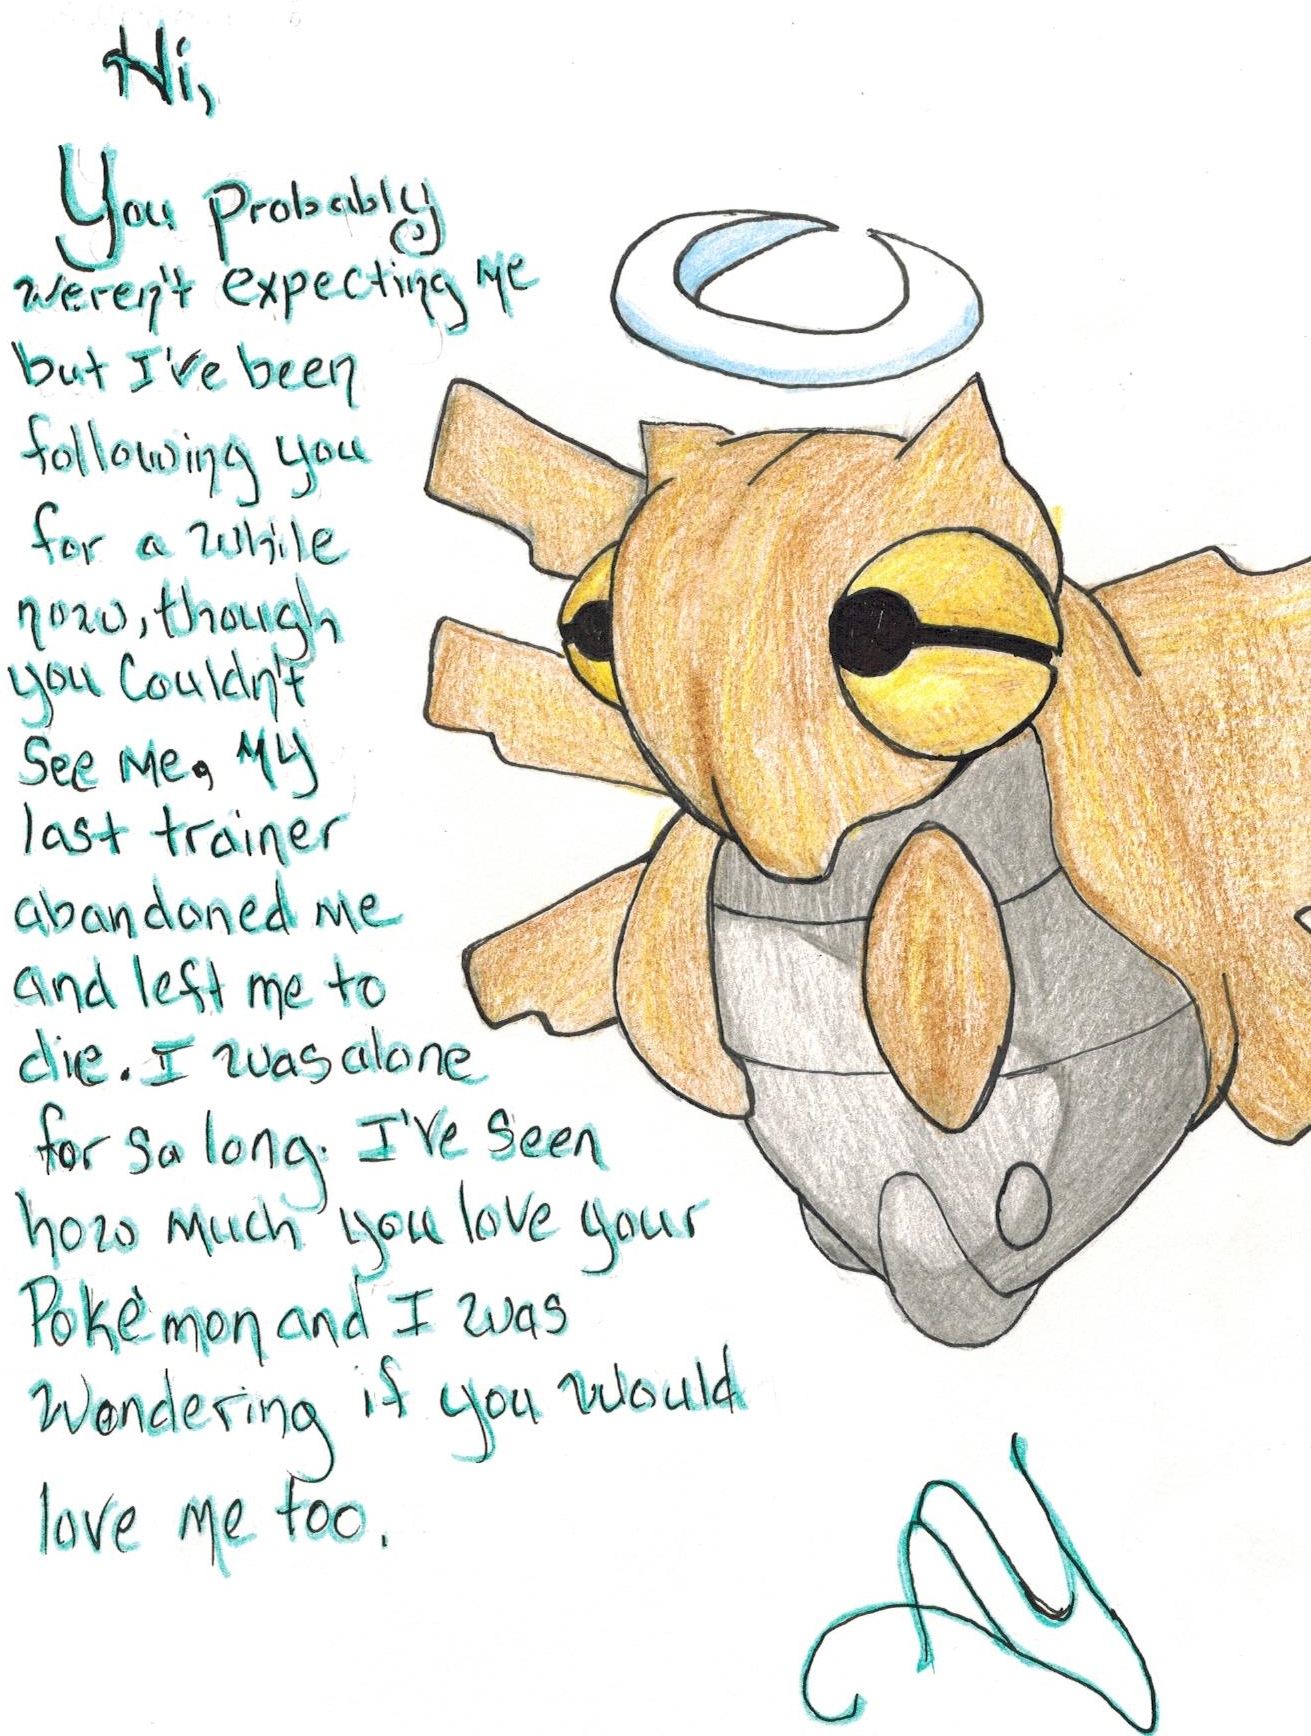 Hi,
You probably
weren't expecting me
but I've been
following you
for a while
now, though
you couldn't
see me. My
last trainer
abandoned me
and left me to
die. I was alone
for so long. I've seen
how much you love your
Pokémon and I was
wondering if you would
love me too.